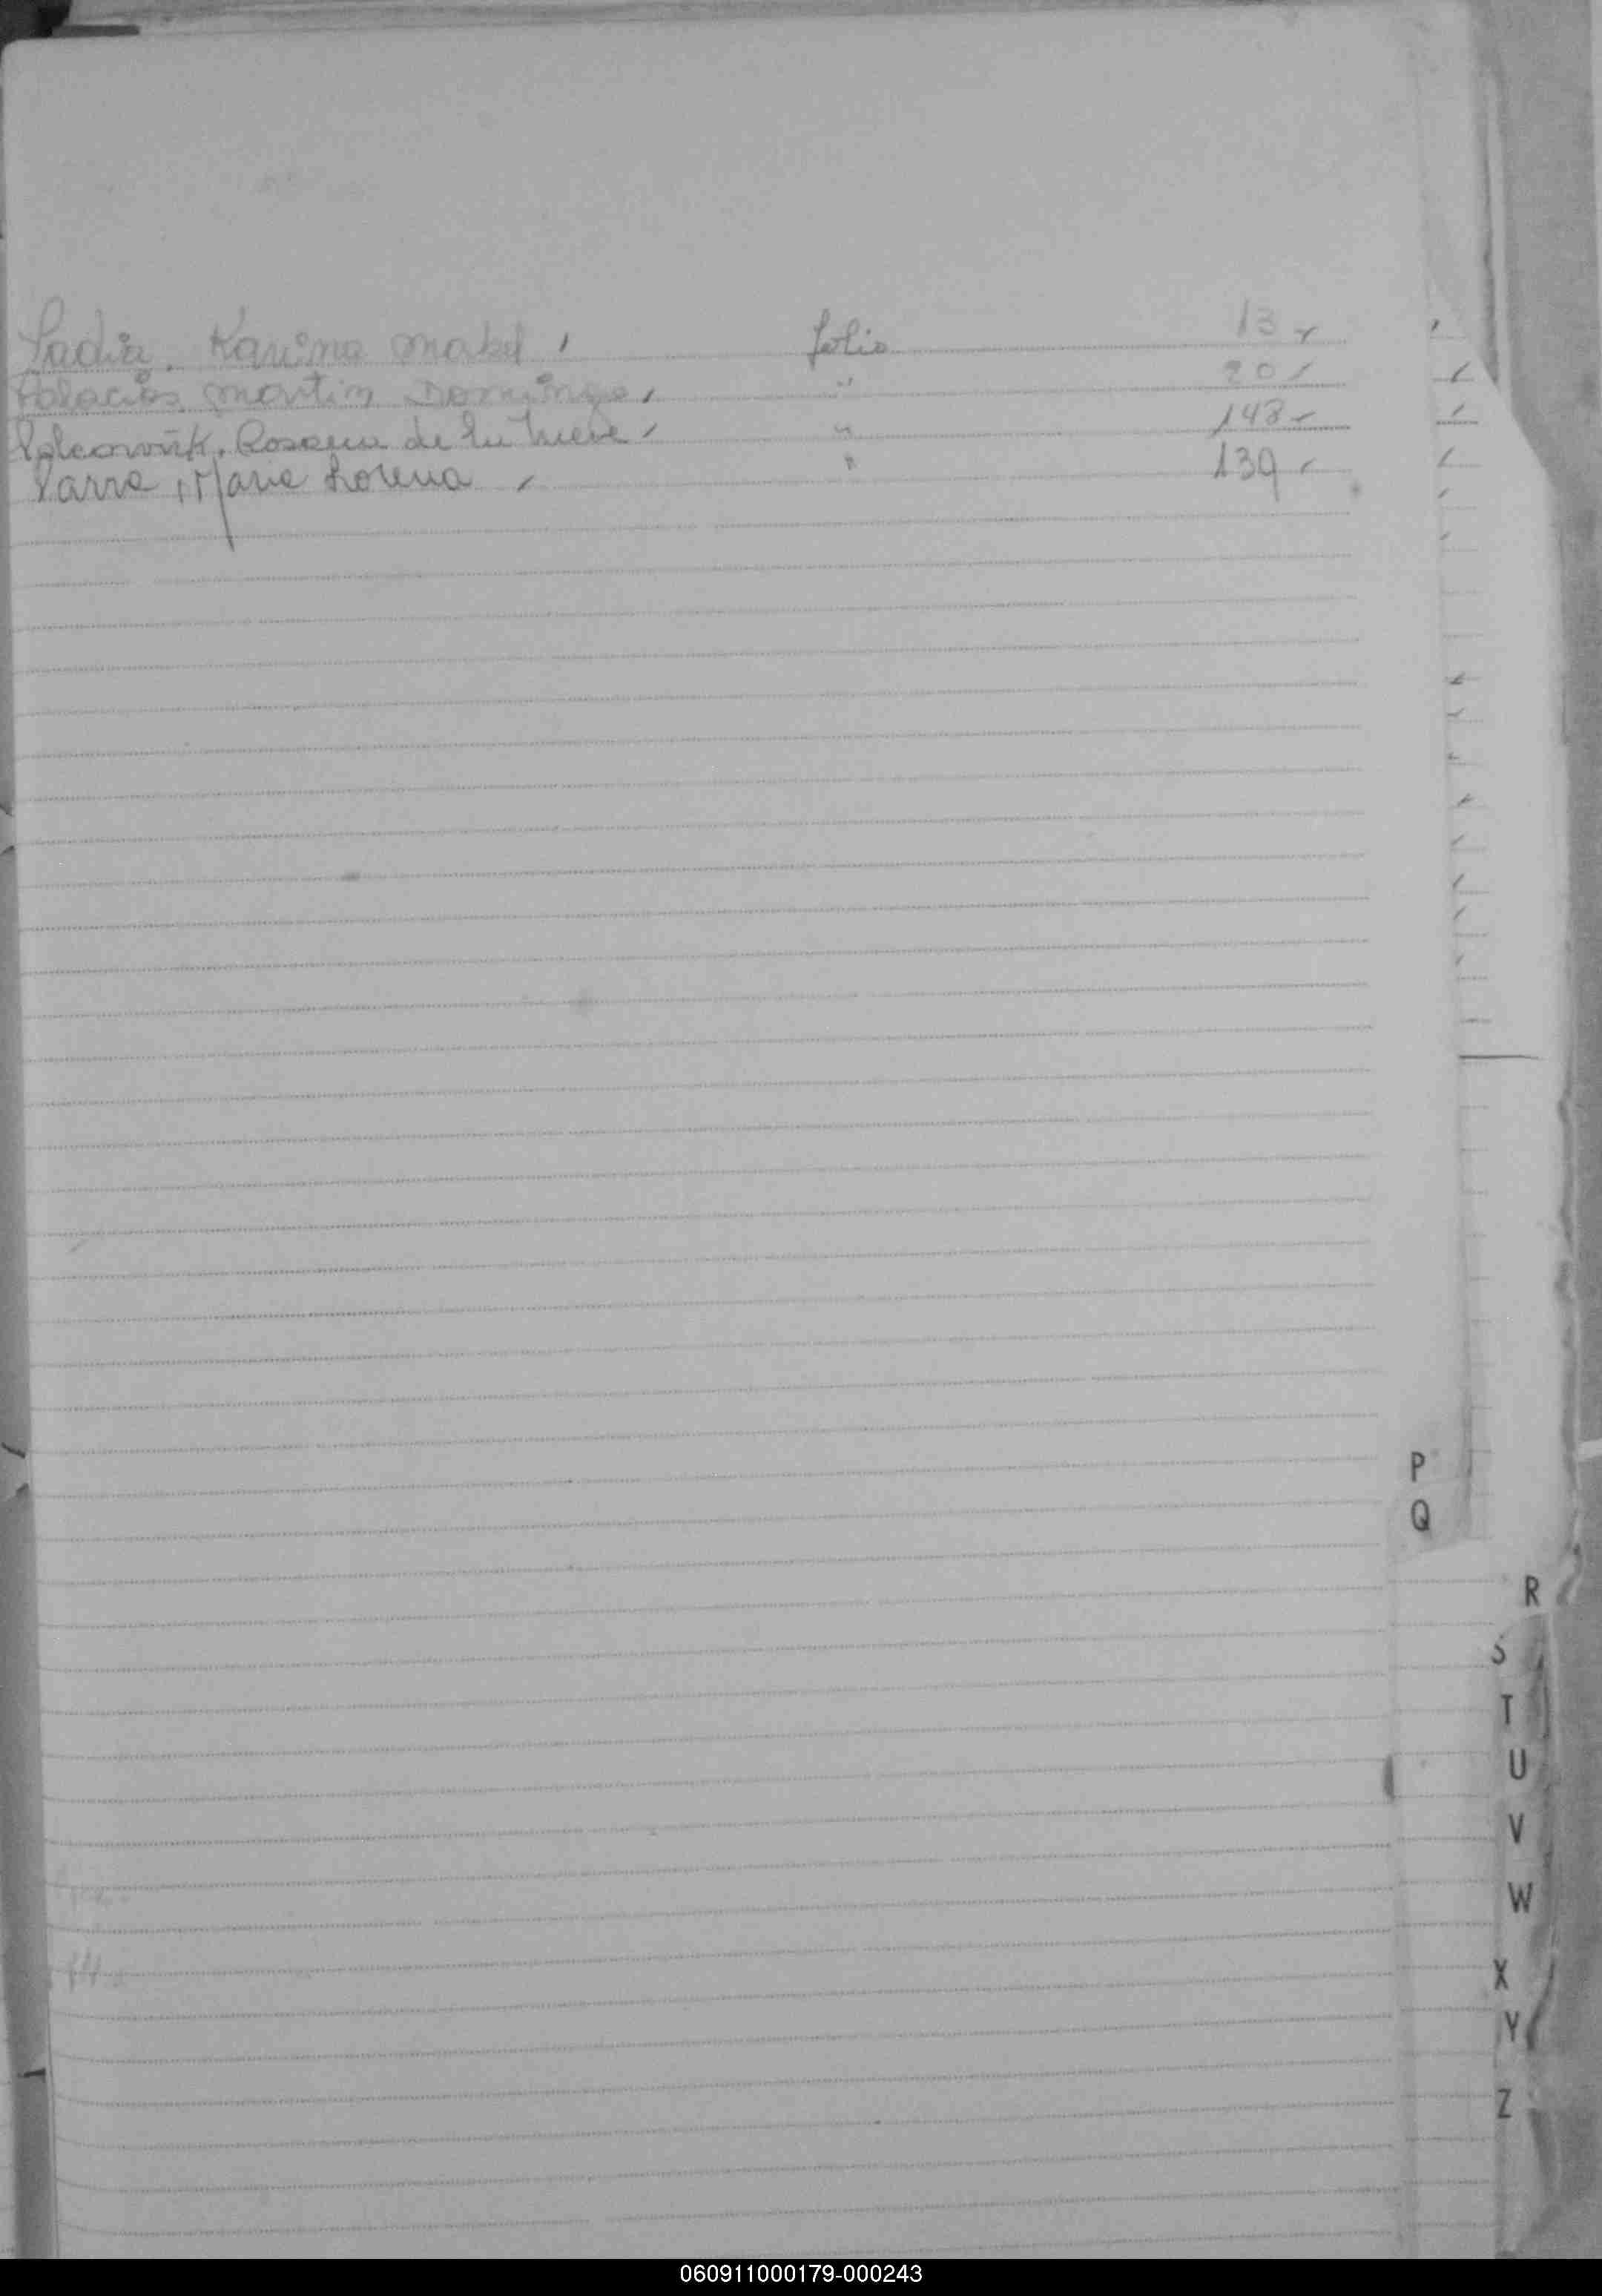 Padia, Karina Mabel folio 13
Palacios Martin Domingo " 20
Rosana de la Nieve " 148
Parra, Maria Lorena " 139
P
Q
R
S
T
U
V
W
X
Y
Z
060911000179-000243